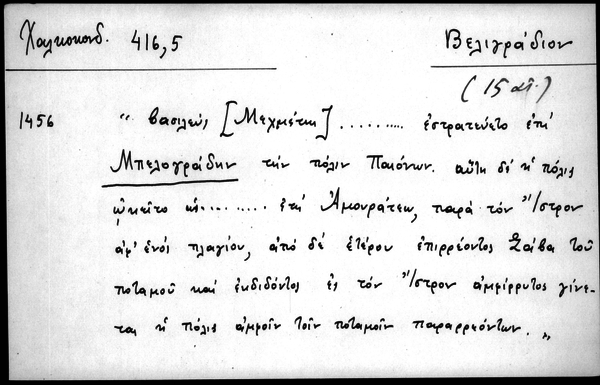 Χαλκοκονδ. 416,5
Βελιγράδιον
(15 αἰ.)
1456 " βασιλεὺς [Μεχμέτης] ........... ἐστρατεύετο ἐπὶ
Μπελογράδην τὴν πόλιν Παιόνων. αὕτη δὲ ἡ πόλις
ᾠκεῖτο ὡς........... ἐπὶ Ἀμουράτεω, παρὰ τὸν Ἴστρον
ἀφ' ἑνὸς πλαγίου, ἀπὸ δὲ ἑτέρου ἐπιρρέοντος Σάβα τοῦ
ποταμοῦ καὶ ἐκδιδόντος ἐς τὸν Ἴστρον ἀμφίρρυτος γίνε-
ται ἡ πόλις ἀμφοῖν τοῖν ποταμοῖν παραρρεόντων. "